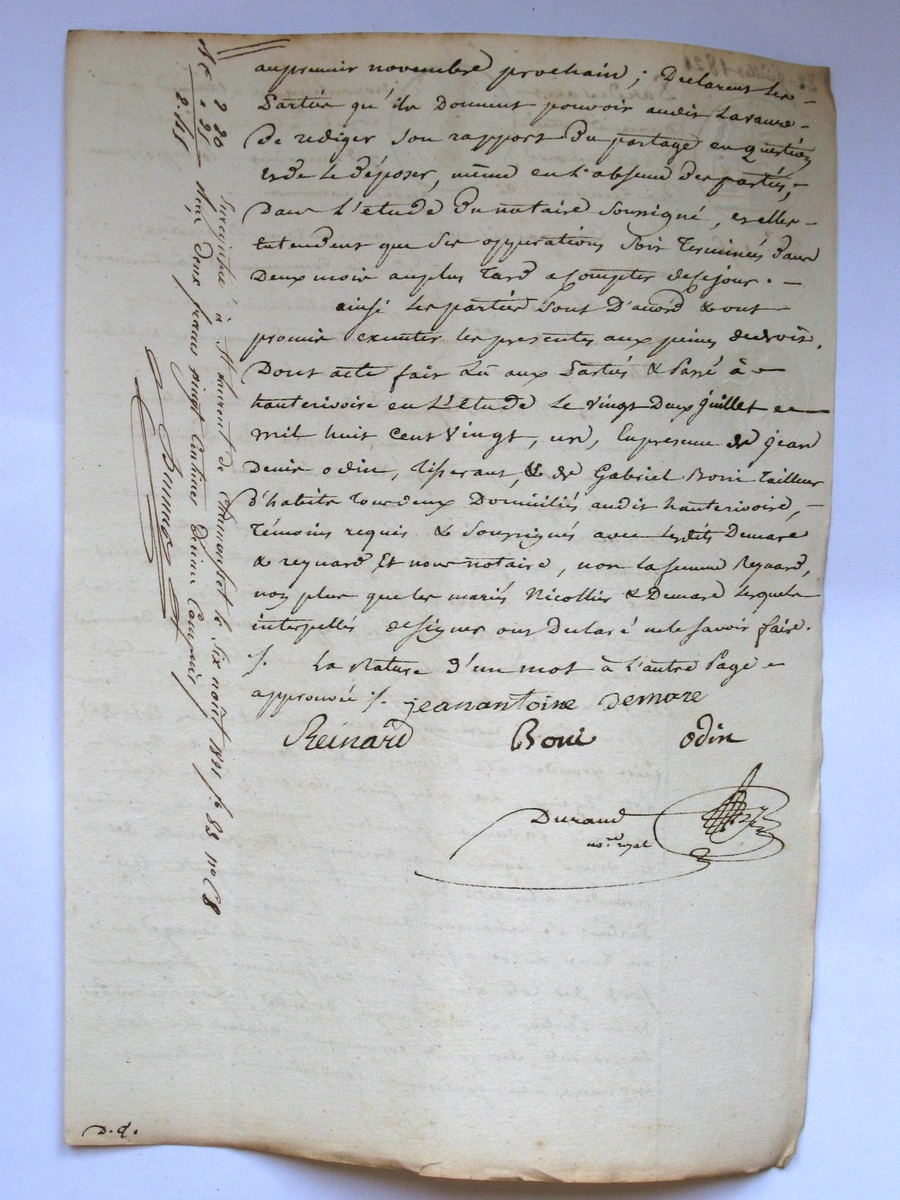 au premier novembre prochain ; Declarent les
Parties qu'ils Donnent pouvoir audit Lavaure
De rediger Son rapport Du partage en question
et de le Déposer, même en l'absence Des parties,
Dans L'etude Du notaire Soussigné, et elles
Entendent que Ses opperations Soit Terminées Dans
Deux mois au plus Tard a Compter de ce jour.
ainsi les parties sont D'acord & ont
promis executer les presentes aux peines de droit.
Dont acte fait Lu aux Parties & Passé à
hauterivoire en L'étude Le vingt Deux juillet
mil huit Cent Vingt, un, En presence de jean
Denis odin, Tisserant, & de Gabriel Boni Tailleur
D'habits Tous deux Domiciliés audit hauterivoire,
Témoins requis & Soussignés avec lesdits Demare
& reynard Et nous notaire, non la femme Reynard,
non plus que les mariés Nicollier & Demare Lesquels
interpellés de Signer ont Declaré ne le Savoir faire.
/. La Rature D'un mot à L'autre Page
approuvée /. jean antoine Demare
Reinard Boni Odin
Durand
no.re royal
2 20
. 22
Enregistré à St Laurent de Chamousset le Six août 1821 f.o 83 r.o C 8
Reçu Deux francs vingt Centimes Décime Compris
D. d.